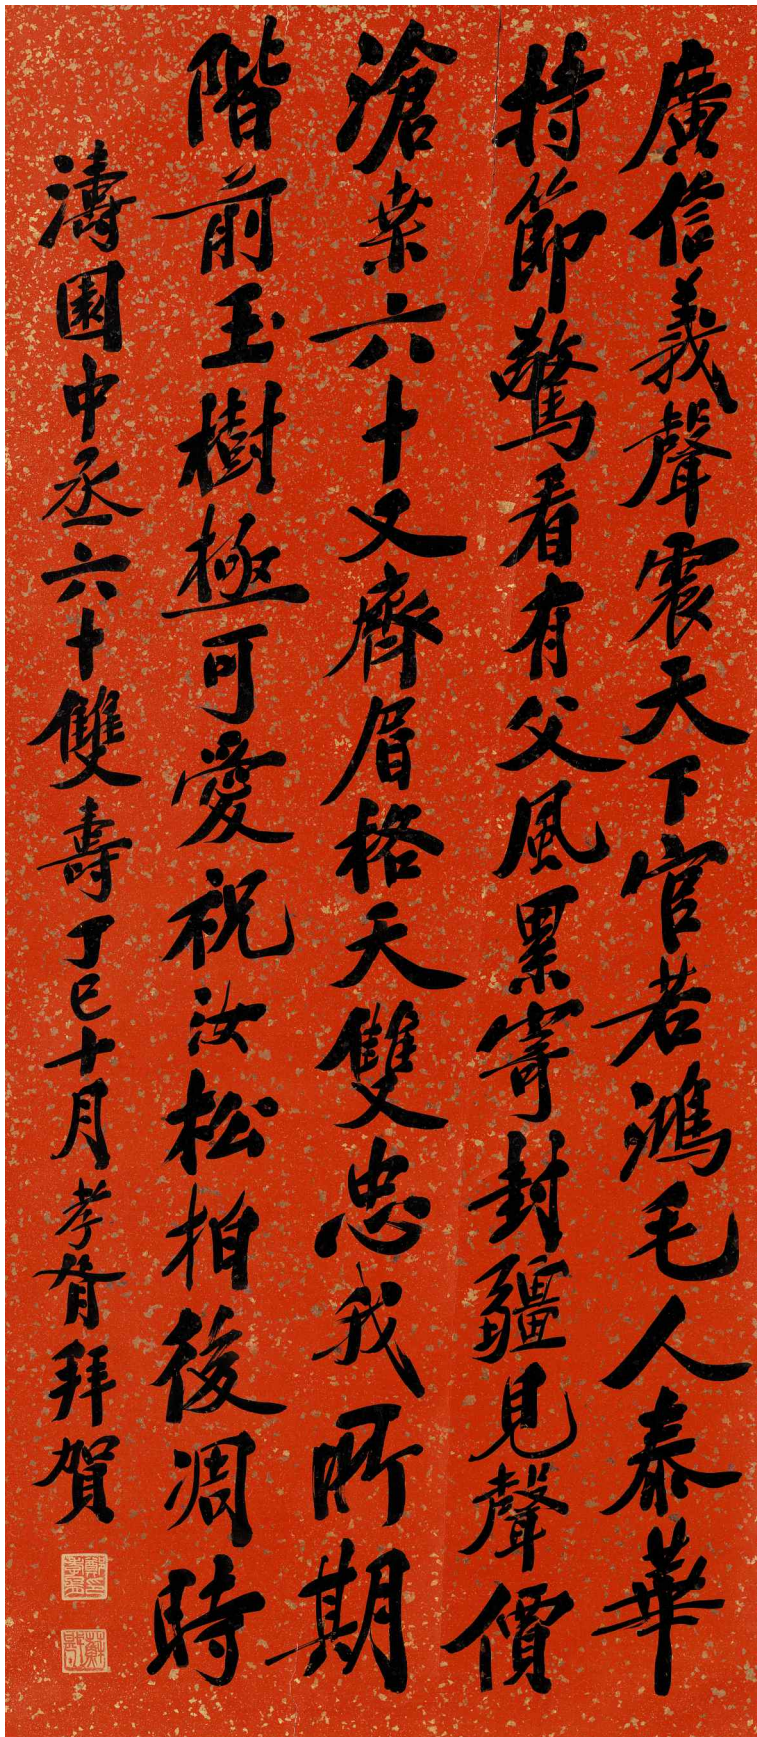 廣信義聲震天下官若鴻毛人泰華
持節驚看有父風累寄封疆見聲價
滄桒六十又齊眉格天雙忠我所期
階前玉樹極可愛祝汝松柏後凋時
濤園中丞六十雙壽丁巳十月孝胥拜賀